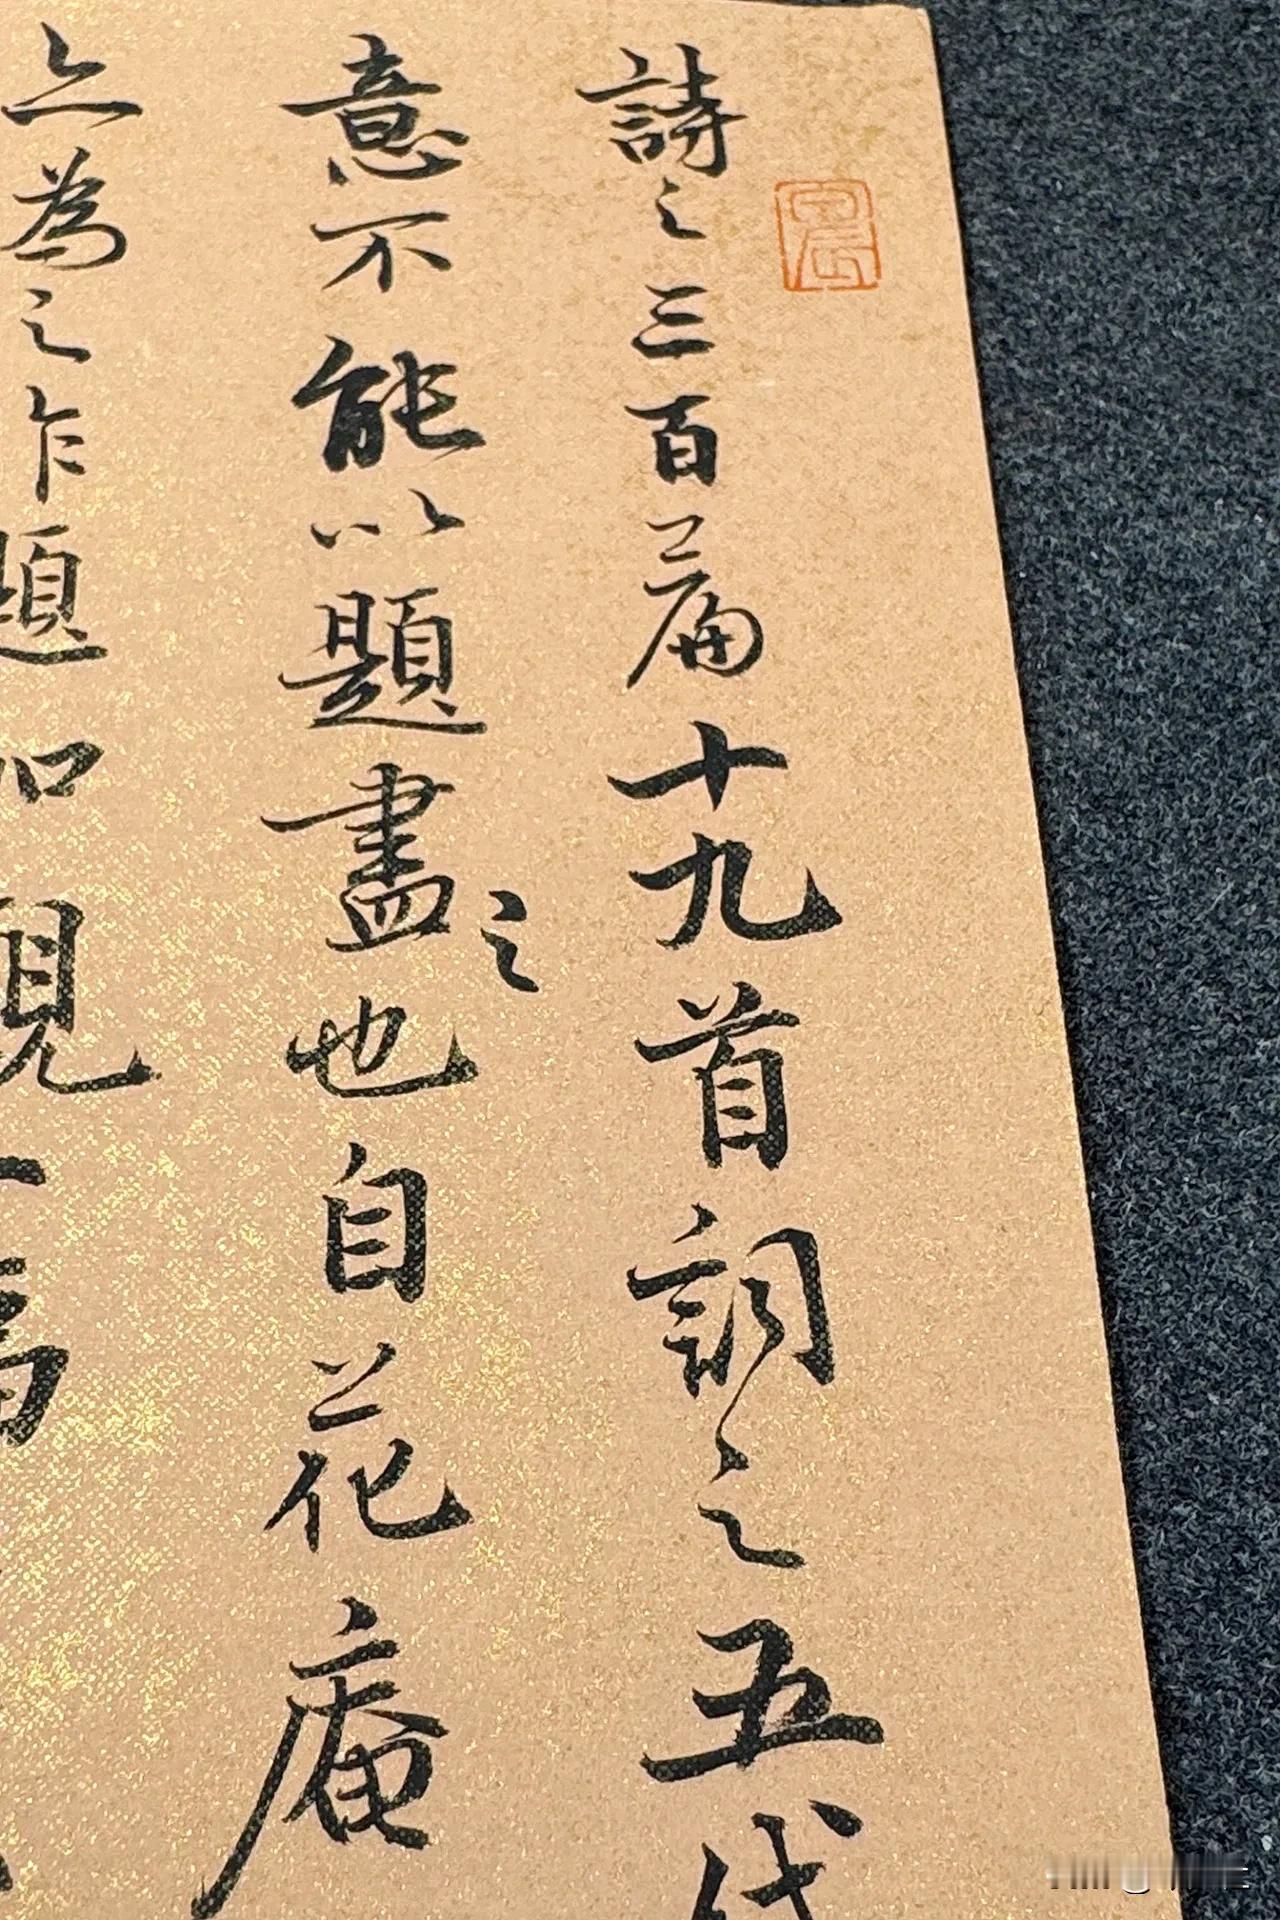 詩之三百篇十九首詞之五代
意不能以題盡之也自花庵
亦為之作題如觀一幅